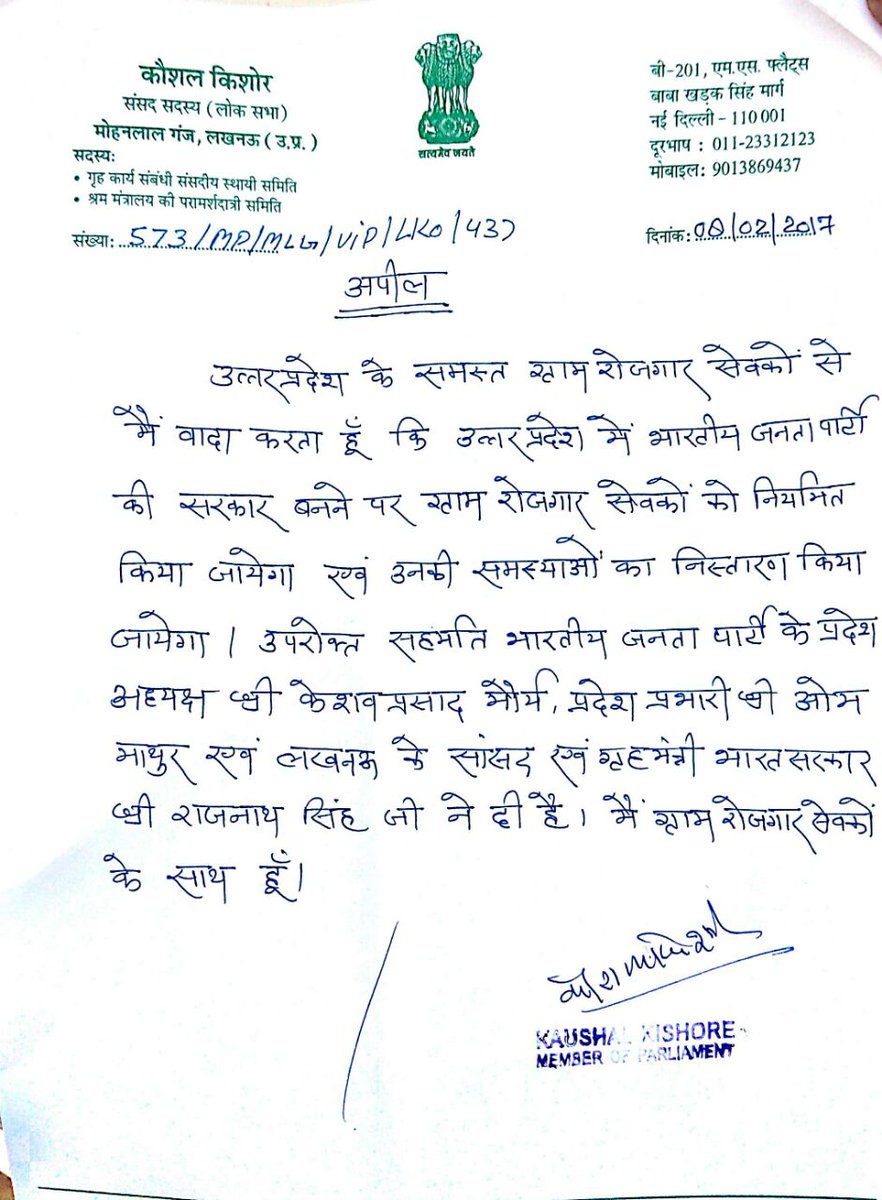 कौशल किशोर
संसद सदस्य (लोक सभा)
मोहनलाल गंज, लखनऊ (उ.प्र.)
सदस्य:
• गृह कार्य संबंधी संसदीय स्थायी समिति
• श्रम मंत्रालय की परामर्शदात्री समिति
संख्या: 573/MP/MLG/VIP/LKO/437
सत्यमेव जयते
बी-201, एम.एस. फ्लैट्स
बाबा खड़क सिंह मार्ग
नई दिल्ली - 110 001
दूरभाष : 011-23312123
मोबाइल: 9013869437
दिनांक: 08/02/2017
अपील
उत्तर प्रदेश के समस्त ग्राम रोजगार सेवकों से
मैं वादा करता हूँ कि उत्तर प्रदेश में भारतीय जनता पार्टी
की सरकार बनने पर ग्राम रोजगार सेवकों को नियमित
किया जायेगा एवं उनकी समस्याओं का निस्तारण किया
जायेगा। उपरोक्त सहमति भारतीय जनता पार्टी के प्रदेश
अध्यक्ष श्री केशव प्रसाद मौर्य, प्रदेश प्रभारी श्री ओम
माथुर एवं लखनऊ के सांसद एवं गृहमंत्री भारत सरकार
श्री राजनाथ सिंह जी ने दी है। मैं ग्राम रोजगार सेवकों
के साथ हूँ।
KAUSHAL KISHORE
MEMBER OF PARLIAMENT